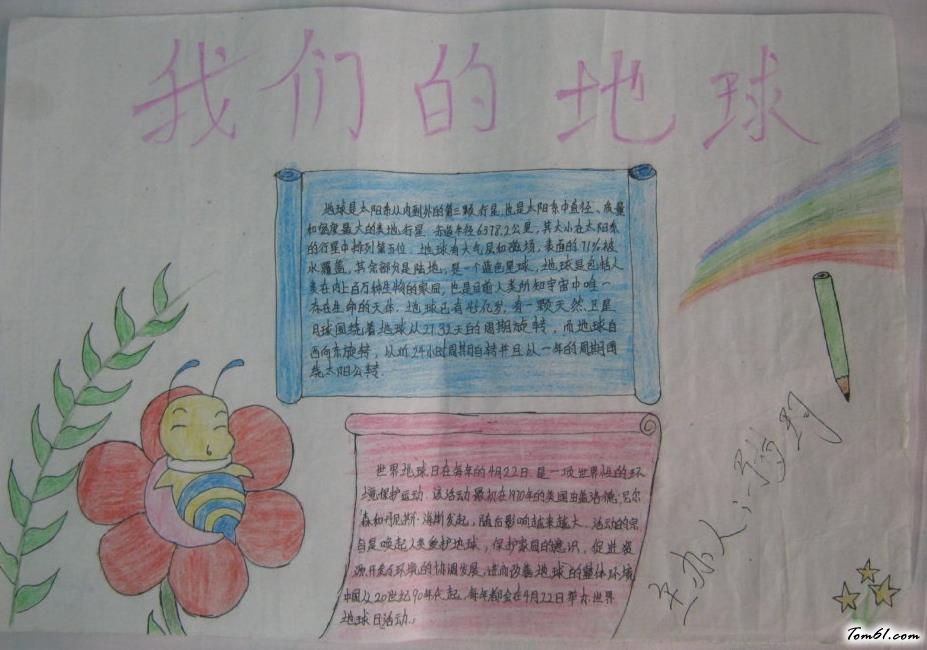 我们的地球
地球是太阳系从内到外的第三颗行星,也是太阳系中直径、质量
和密度最大的类地行星. 赤道半径6378.2公里,其大小在太阳系
的行星中排列第五位. 地球有大气层和磁场,表面的71%被
水覆盖,其余部分是陆地,是一个蓝色星球,地球是包括人
类在内上百万种生物的家园,也是目前人类所知宇宙中唯一
存在生命的天体. 地球已有46亿岁,有一颗天然卫星
月球围绕着地球以27.32天的周期旋转,而地球自
西向东旋转,以近24小时周期自转并且以一年的周期围
绕太阳公转.
世界地球日在每年的4月22日 是一项世界性的环
境保护运动. 该活动最初在1970年的美国由盖洛德·尼尔
森和丹尼斯·海斯发起,随后影响越来越大. 活动的宗
旨是唤起人类爱护地球,保护家园的意识,促进资
源开发与环境的协调发展,进而改善地球的整体环境
中国从20世纪90年代起,每年都会在4月22日举办世界
地球日活动.
主办人:
Tom61.com